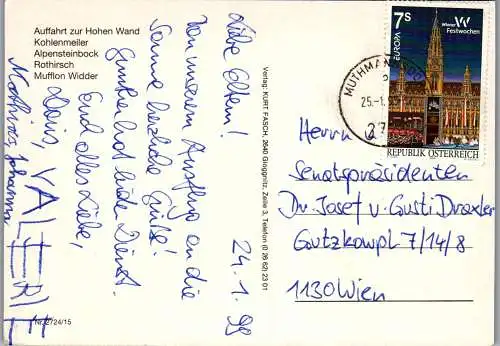 Auffahrt zur Hohen Wand
Kohlenmeiler
Alpensteinbock
Rothirsch
Mufflon Widder
24.1.99
Liebe Eltern!
Von unserem Ausflug an die
Sonne herzliche Grüße!
Günther hat leider Dienst.
Und alles Liebe,
Doris, VALERIE
Mathias, Johanna,
Nr. 2724/15
Verlag: KURT FASCH, 2640 Gloggnitz, Zeile 3, Telefon (0 26 62) 23 01
7S
EUROPA
Wiener
Festwochen
REPUBLIK ÖSTERREICH
25.-1.
Herrn
Senatspräsidenten
Dr. Josef u. Gusti Draxler
Gutzkowpl. 7/14/8
1130 Wien